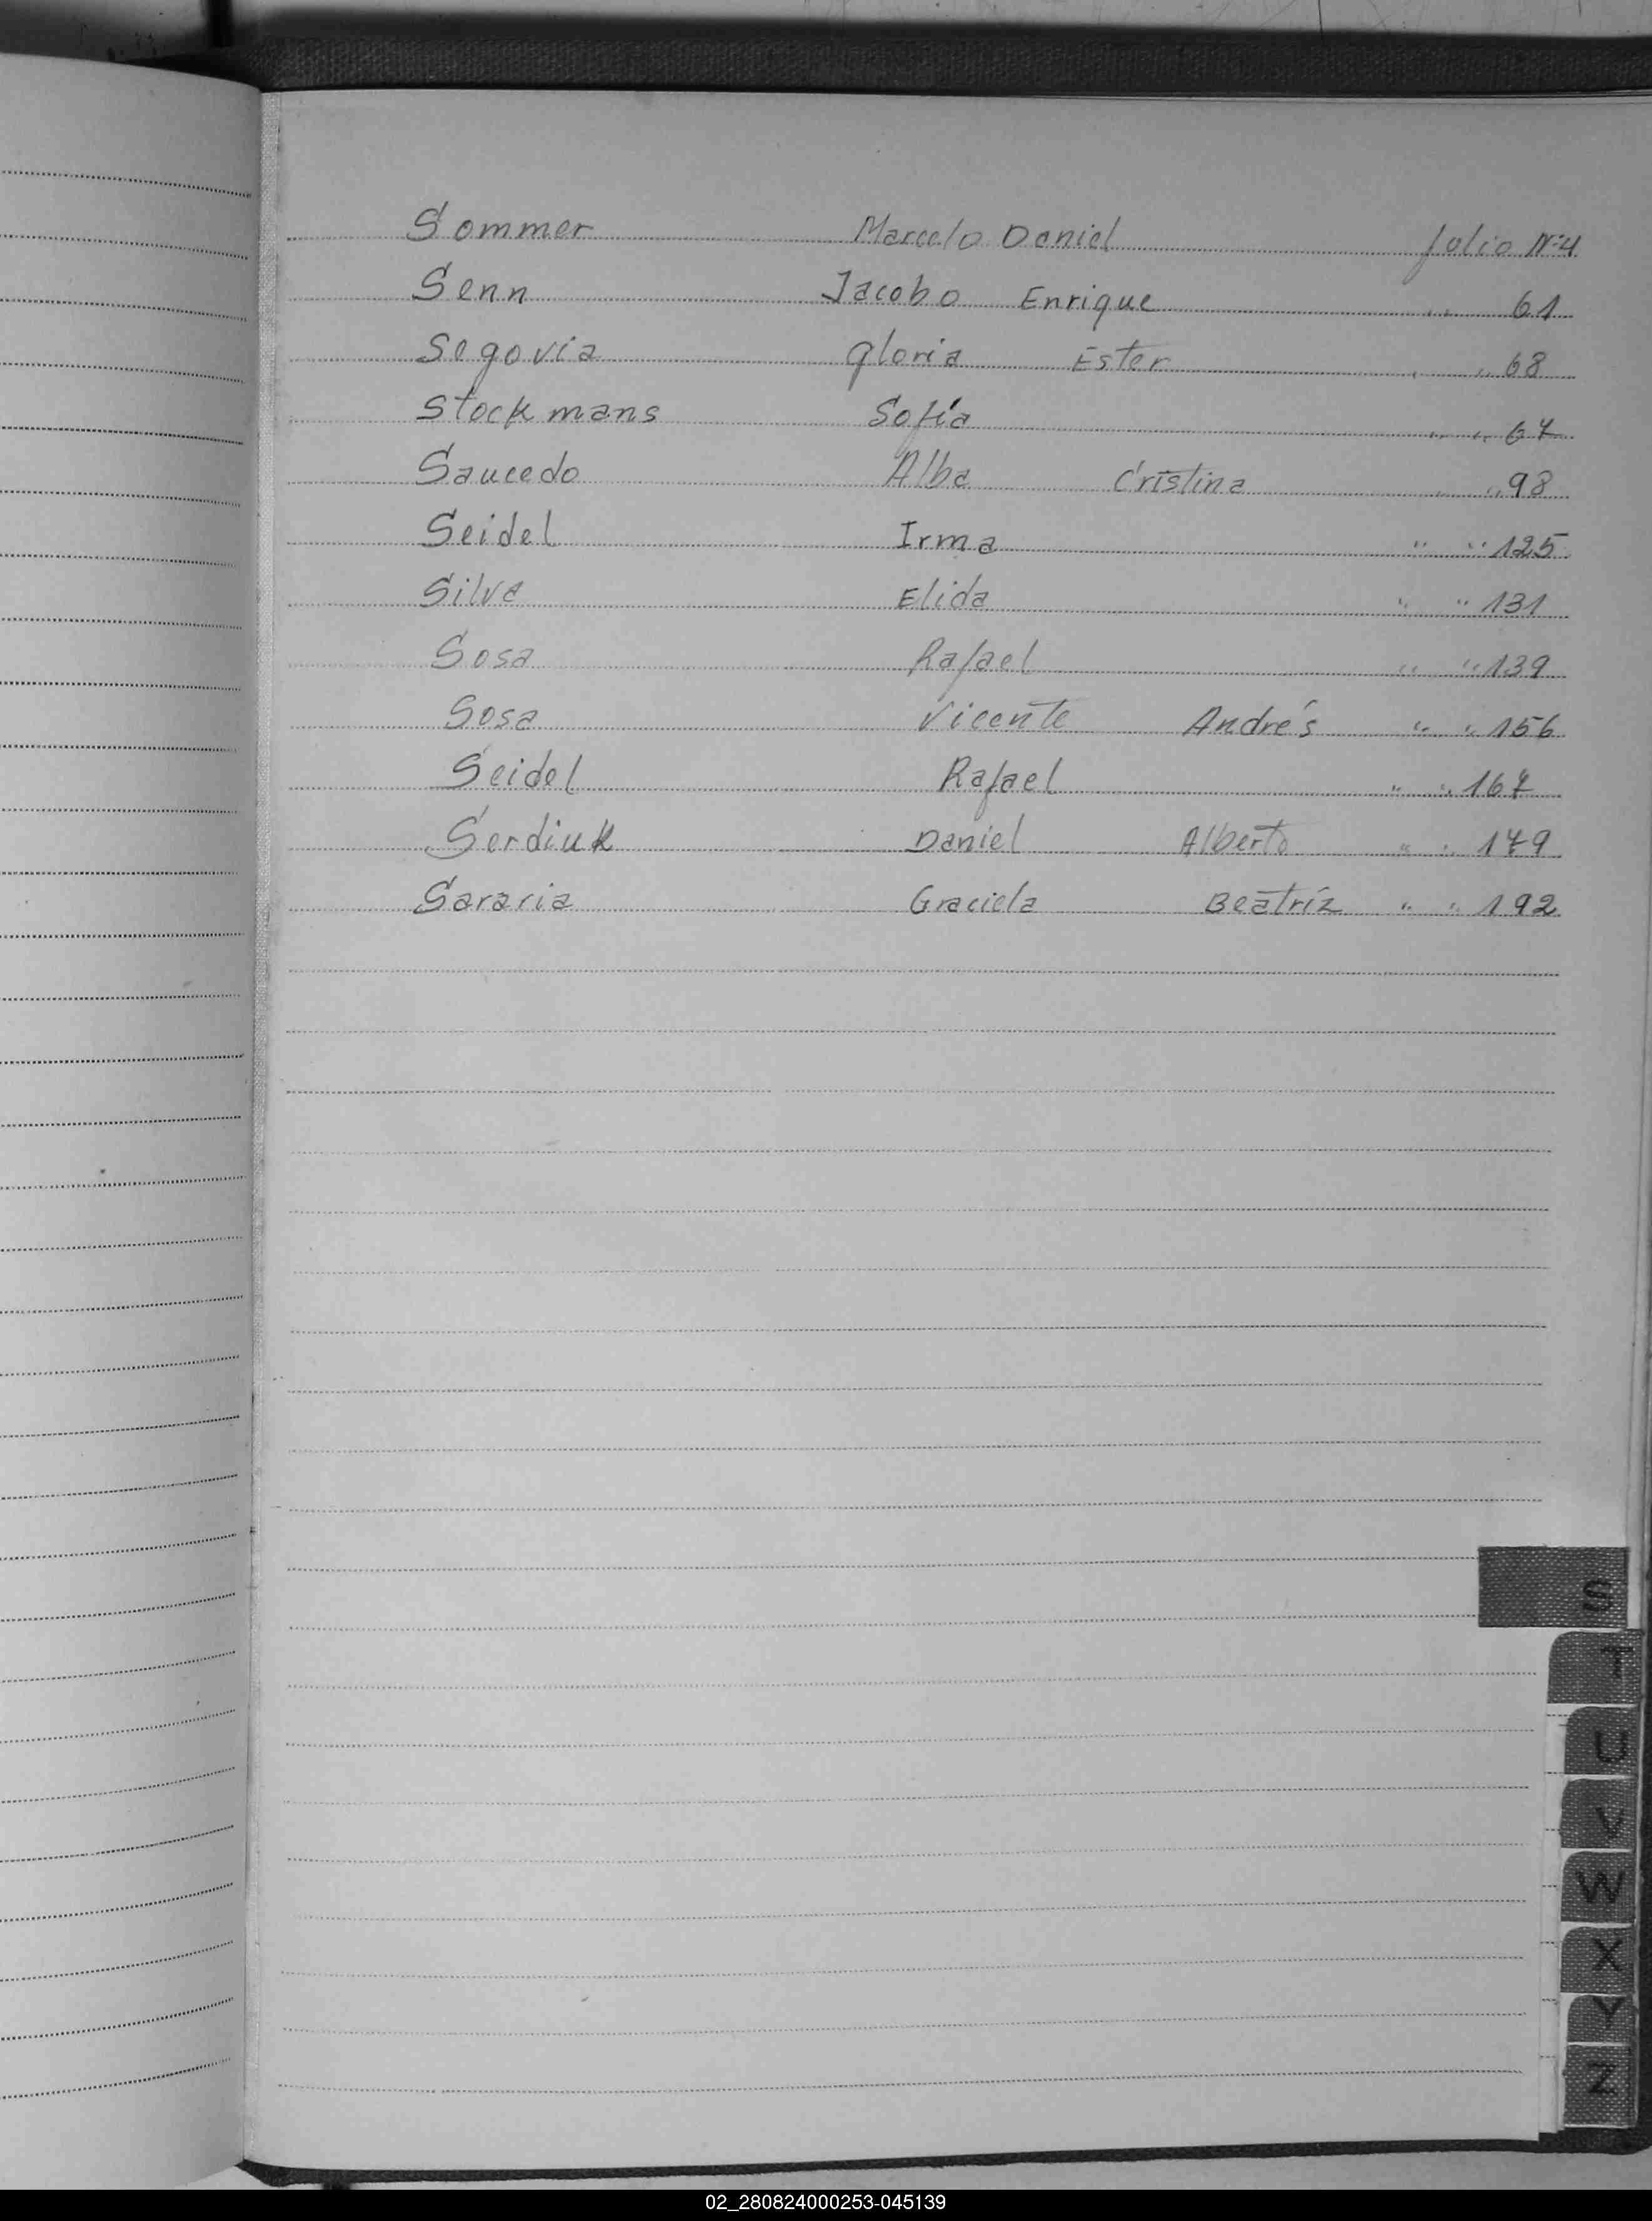 Sommer Marcelo Daniel folio Nº 4
Senn Jacobo Enrique " 61
Segovia Gloria Ester " " 68
Stockmans Sofía " " 67
Saucedo Alba Cristina " " 98
Seidel Irma " " 125
Silva Elida " " 131
Sosa Rafael " " 139
Sosa Vicente Andrés " " 156
Seidel Rafael " " 167
Serdiuk Daniel Alberto " " 179
Sararia Graciela Beatríz " " 192
S
T
U
V
W
X
Y
Z
02_280824000253-045139